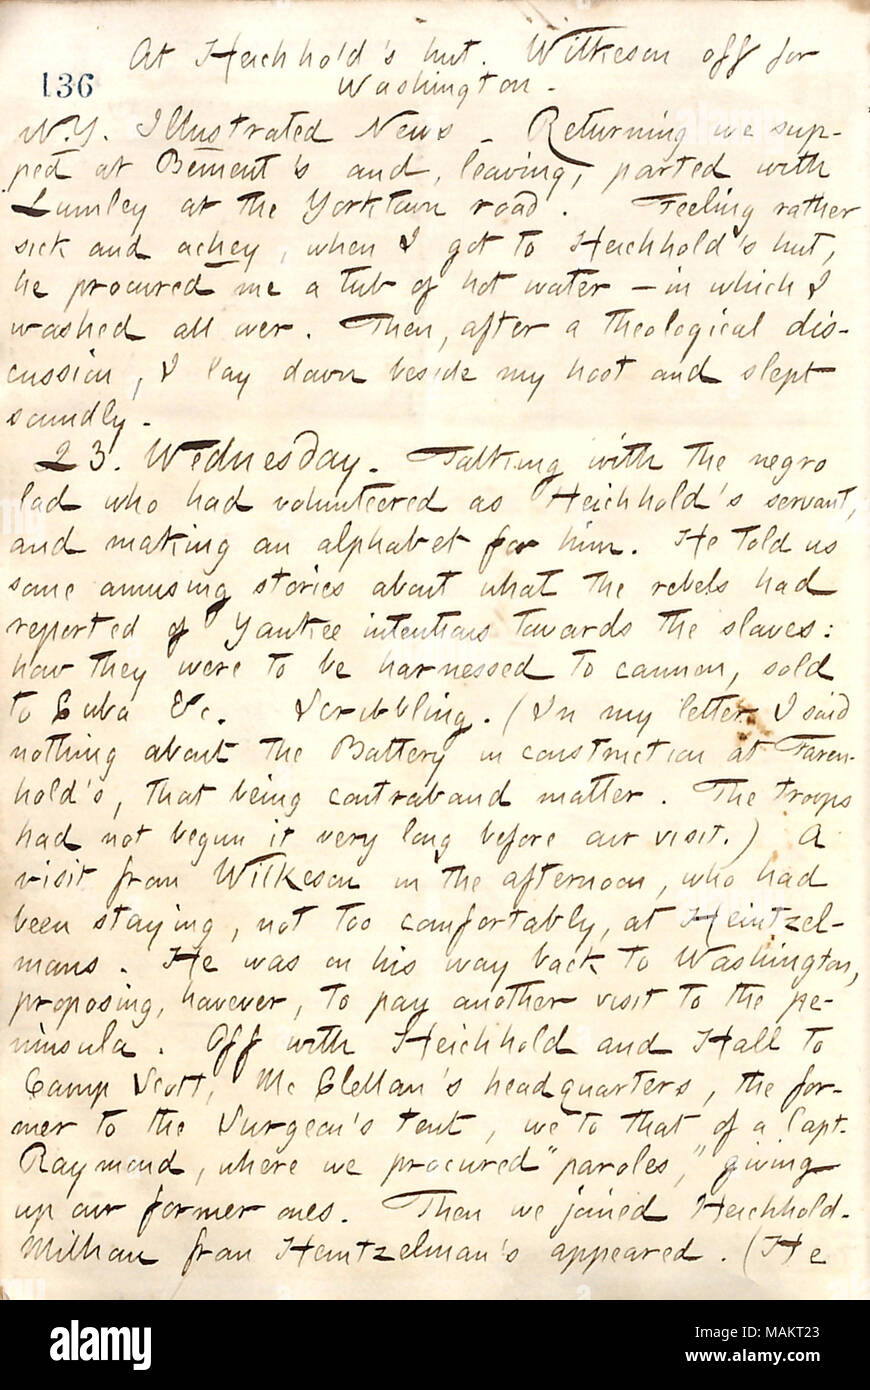 At Heichhold's hut. Wilkeson off for
136
Washington.
N.Y. Illustrated News. Returning we sup-
ped at Bement's and, leaving, parted with
Lumley at the Yorktown road. Feeling rather
sick and achey, when I got to Heichhold's hut,
he procured me a tub of hot water — in which I
washed all over. Then, after a theological dis-
cussion, I lay down beside my host and slept
soundly.
23. Wednesday. Talking with the negro
lad who had volunteered as Heichhold's servant,
and making an alphabet for him. He told us
some amusing stories about what the rebels had
reported of Yankee intentions towards the slaves:
how they were to be harnessed to cannon, sold
to Cuba &c. Scribbling. (In my letter I said
nothing about the Battery in construction at Faren-
hold's, that being contraband matter. The troops
had not begun it very long before our visit.) A
visit from Wilkeson in the afternoon, who had
been staying, not too comfortably, at Heintzel-
mans. He was on his way back to Washington,
proposing, however, to pay another visit to the pe-
ninsula. Off with Heichhold and Hall to
Camp Scott, Mc Clellan's headquarters, the for-
mer to the Surgeon's tent, we to that of a Capt.
Raymond, where we procured "paroles," giving
up our former ones. Then we joined Heichhold.
Milhau from Heintzelman's appeared. (He
alamy
Image ID: MAKT23
www.alamy.com